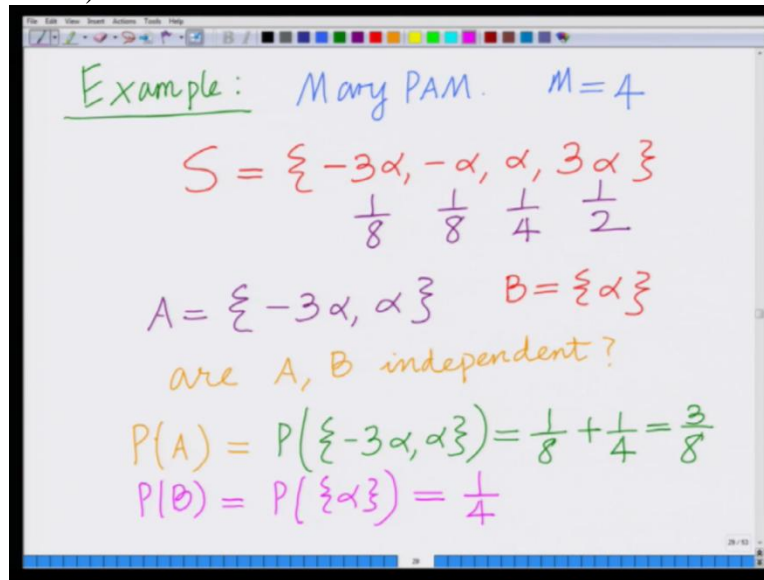 File Edit View Insert Actions Tools Help
Example: Mary PAM. M = 4
S = {-3α, -α, α, 3α}
1/8 1/8 1/4 1/2
A = {-3α, α} B = {α}
are A, B independent?
P(A) = P({-3α, α}) = 1/8 + 1/4 = 3/8
P(B) = P({α}) = 1/4
29 / 53
29